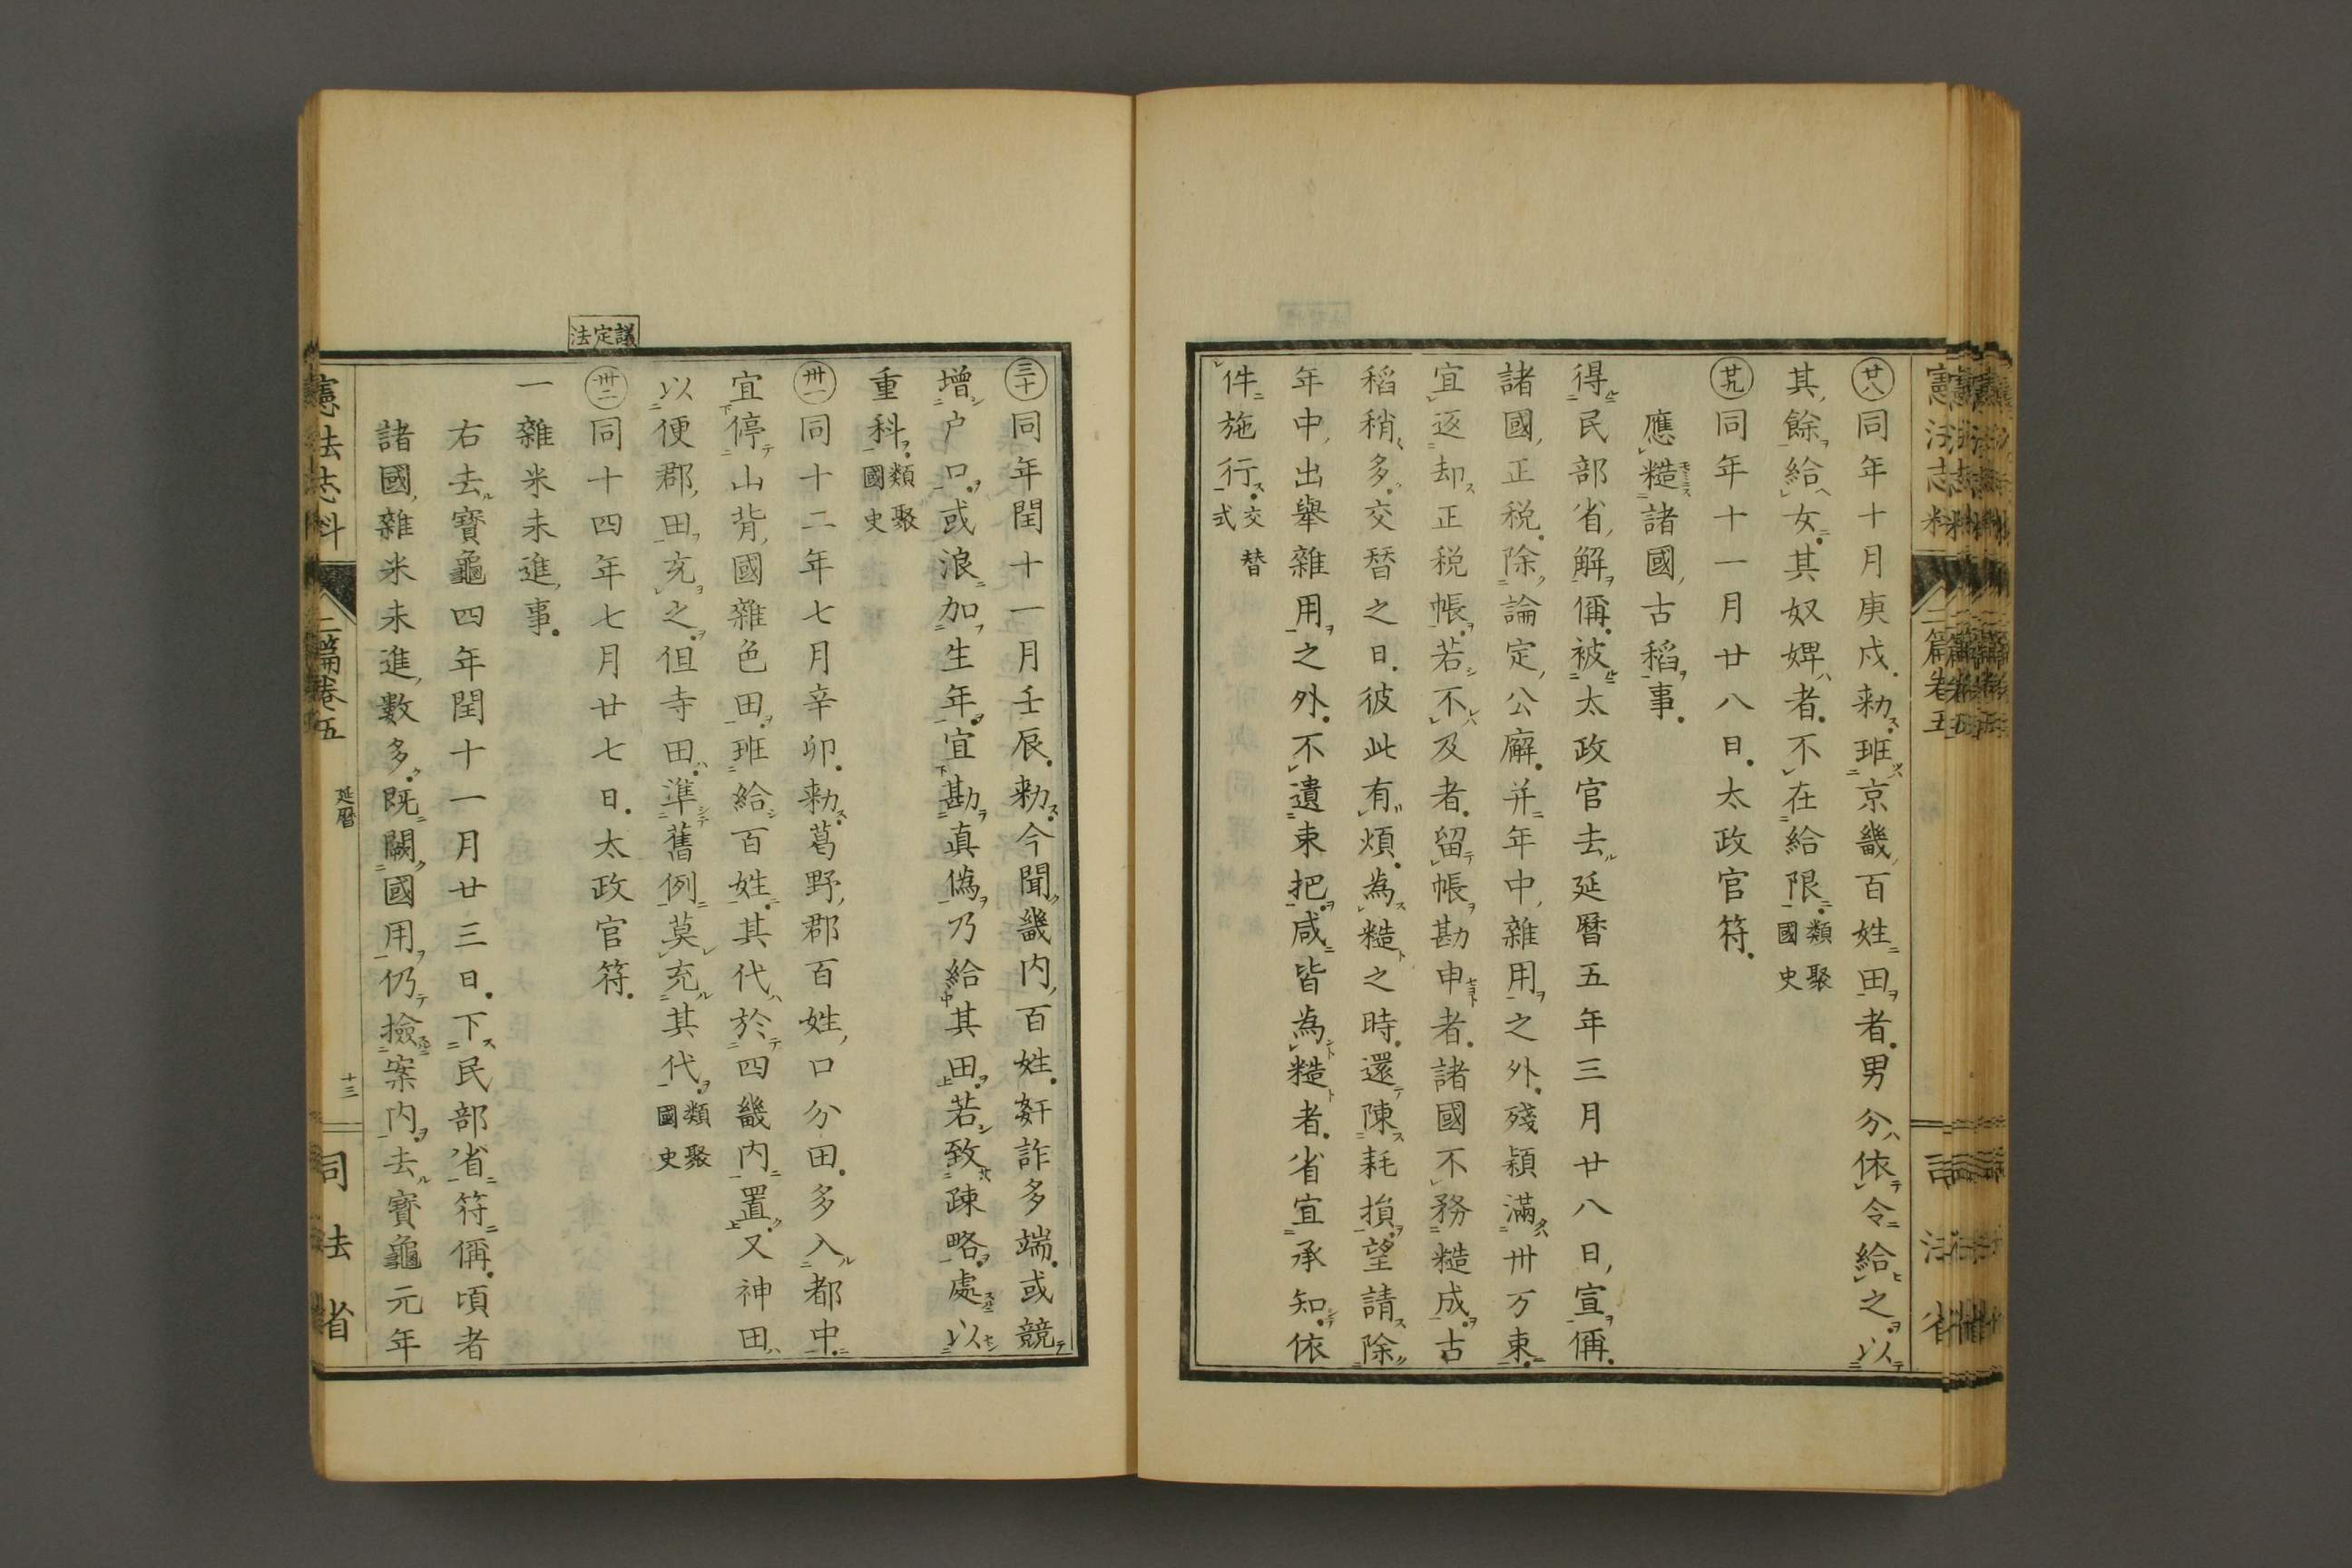 廿八同年十月庚戌勅班京畿百姓田者男分依令給之以
其餘給女其奴婢者不在給限類聚國史
廿九同年十一月廿八日太政官符
應糙諸國古稻事
得民部省解偁被太政官去延曆五年三月廿八日宣偁
諸國正税除論定公廨并年中雜用之外殘穎滿卅万束
宜返却正税帳若不及者留帳勘申者諸國不務糙成古
稻稍多交替之日彼此有煩為糙之時還陳耗損望請除
年中出舉雜用之外不遺束把咸皆為糙者省宜承知依
件施行交替式
三十同年閏十一月壬辰勅今聞畿内百姓姧詐多端或競
增户口或浪加生年宜勘真偽乃給其田若致疎略處以
重科類聚國史
卅一同十二年七月辛卯勅葛野郡百姓口分田多入都中
宜停山背國雜色田班給百姓其代於四畿内置又神田
以便郡田充之但寺田準舊例莫充其代類聚國史
議定法
卅二同十四年七月廿七日太政官符
一雜米未進事
右去寶龜四年閏十一月廿三日下民部省符偁頃者
諸國雜米未進數多既闕國用仍撿案内去寶龜元年
憲法志料 二篇卷五 延曆 十三 司法省